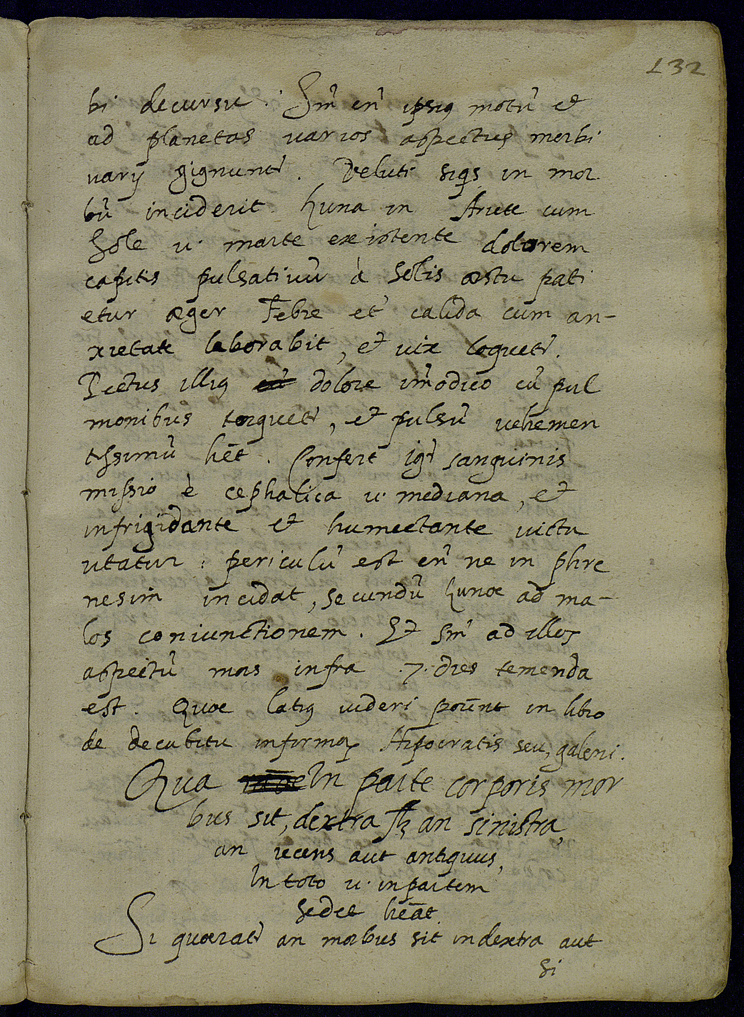 132
bi decursu. Sm̄ en̄ ipsiꝰ motū et
ad planetas varios aspectus morbi
varij gignunt̄. Veluti siqs in mor
bū inciderit Luna in Ariete cum
Sole v. marte existente dolorem
capitis pulsativū à Solis æstu pati
etur æger Febre et calida cum an-
xietate laborabit, et vix loquet̄.
Pectus illiꝰ dolore im̄odico cū pul
monibus torquet̄, et pulsū vehemen
tissimū hēt. Confert igr̄ sanguinis
missio è cephalica v. mediana, et
infrigidante et humectante victu
utatur: periculū est en̄ ne in phre
nesim incidat, secundū Lunæ ad ma-
los coniunctionem. Et Sm̄ ad illos
aspectū mors infra .7. dies temenda
est. Quæ latiꝰ videri poūnt in libro
de decubitu infirmoꝝ Hipocratis seu, galeni.
Qua In parte corporis mor
bus sit, dextra an sinistra,
an recens aut antiquus,
In toto v. in partem
sedet hēat.
Si quærat̄ an morbus sit in dextra aut
si